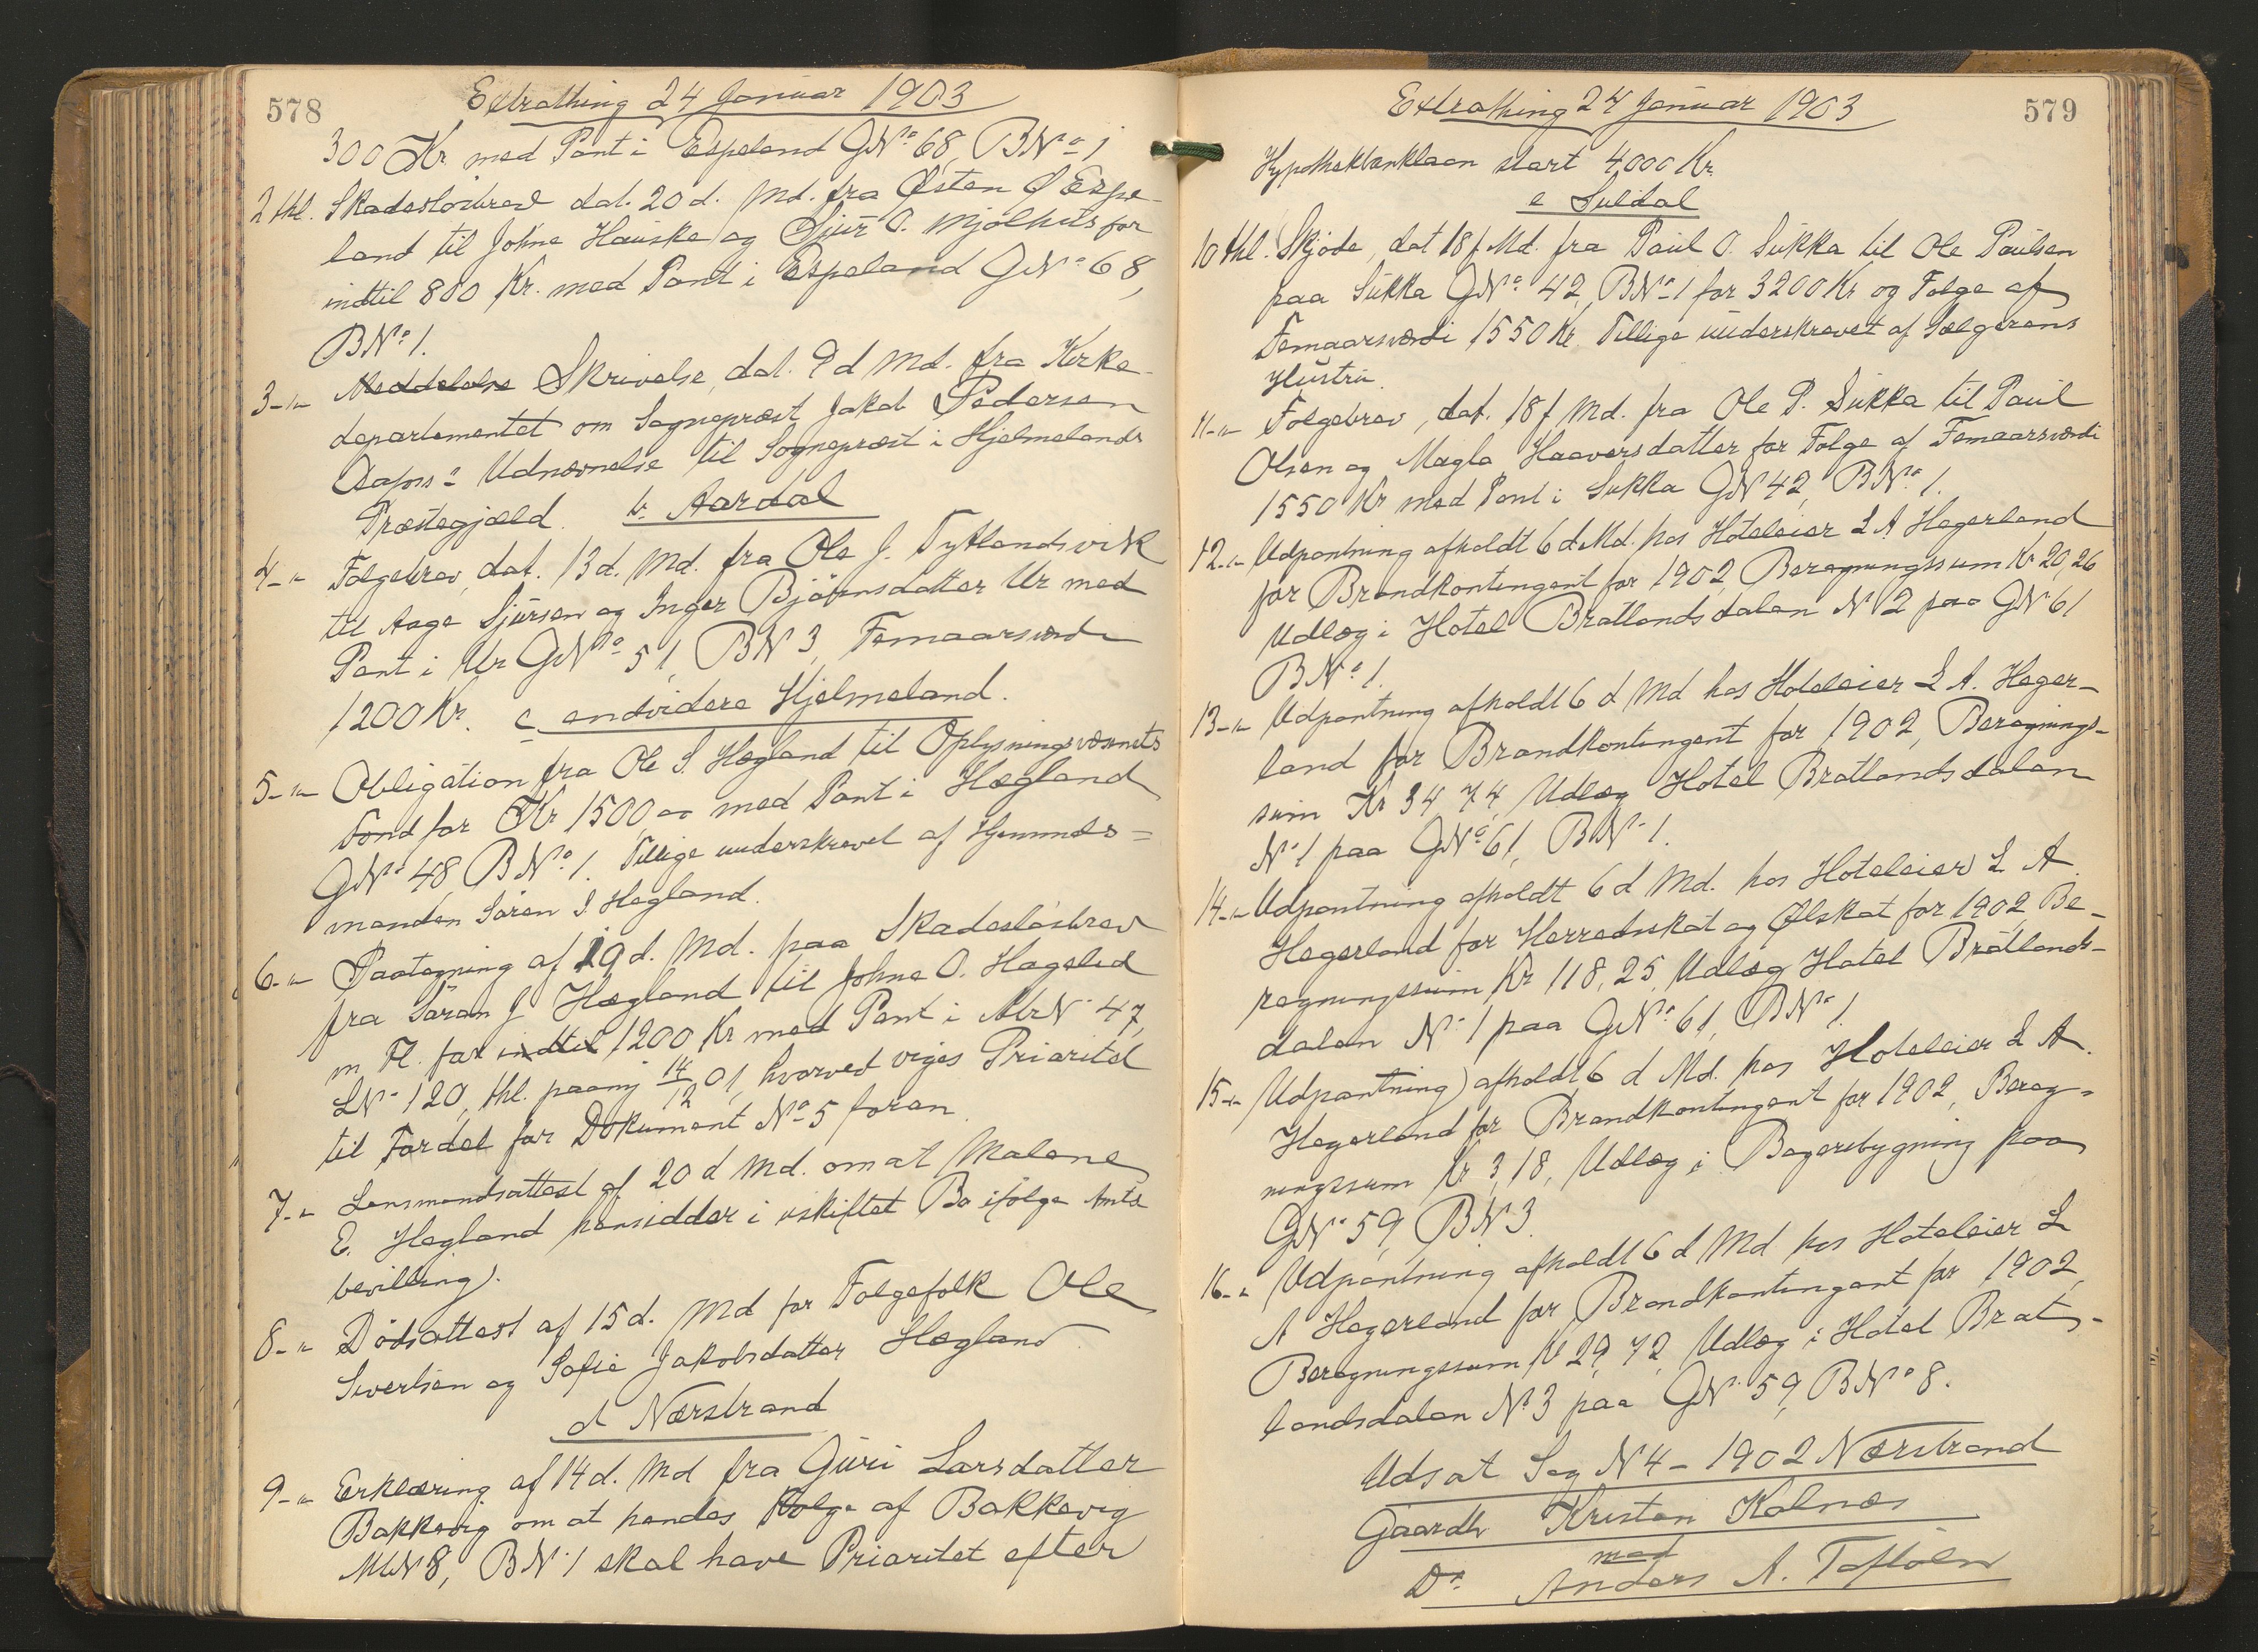 578
Extrathing 24 Januar 1903
300 Kr. med Pant i Espeland GNo 68, BNo 1
2 thl. Skadesløsbrev dat. 20 d. Md. fra Østen Ø Espe-
land til Johne Hauske og Sjur O. Mjølhus for
indtil 800 Kr. med Pant i Espeland GNo 68,
BNo 1.
3-"- Meddelelse Skrivelse, dat. 9 d Md. fra Kirke-
departementet om Sogneprest Jakob Pedersen
Udnævnelse til Sogneprest i Hjelmelands
Præstegjæld. b. Aardal
4-"- Følgebrev, dat. 13 d. Md. fra Ole J. Tytlandsvik
til Aage Sjursen og Inger Bjørnsdatter Ur med
Pant i Ur GNo 51, BN 3, Femaarsværdi
1200 Kr. c endvidere Hjelmeland.
5-"- Obligation fra Ole S. Hægland til Oplysningsvæsenets
Fond for Kr 1500,00 med Pant i Hægland
GNo 48 BNo 1. Tillige underskrevet af Hjemmels=
manden Søren J Hægland.
6-"- Paategning af 19 d. Md. paa Skadesløsbrev
fra Søren J Hægland til Johne O. Hageled
m Fl. for indtil 1200 Kr med Pant i MtrN 47,
LN 120, thl. paany 14/12 01, hvorved viges Prioritet
til Fordel for Dokument No 5 foran
7-"- Lensmandsattest af 20 d Md. om at Malene
E. Hegland hensidder i uskiftet Bo ifølge Amts
bevilling).
8-"- Dødsattest af 15 d. Md for Følgefolk Ole
Sivertsen og Sofie Jakobsdatter Hægland
d Nærstrand
9-"- Erklæring af 14 d. Md fra Guri Larsdatter
Bakkevig om at hendes Følge af Bakkevig
MN 8, BN 1 skal have Prioritet efter
579
Extrathing 24 Januar 1903
Hypothekbanklaan stort 4000 Kr.
e Suldal
10 thl. Skjøde, dat 18 f Md. fra Paul O. Sukka til Ole Paulsen
paa Sukka GNo 42, BNo 1 for 3200 Kr og Følge af
Femaarsværdi 1550 Kr. Tillige underskrevet af Sælgerens
Hustru.
11-"- Følgebrev, dat. 18 f Md. fra Ole P. Sukka til Paul
Olsen og Magla Haaversdatter for Følge af Femaarsværdi
1550 Kr med Pant i Sukka GN 42, BNo 1.
12-"- Udpantning afholdt 6 d. Md. hos Hoteleier L A Hegerland
for Brandkontingent for 1902, Beregningssum Kr 20,26
Udlæg i Hotel Bratlandsdalen N 2 paa GN 61
BNo 1.
13-"- Udpantning afholdt 6 d Md hos Hoteleier L A. Heger-
land for Brandkontingent for 1902, Beregnings-
sum Kr 34 74, Udlæg Hotel Bratlandsdalen
No 1 paa GNo 61, BNo 1.
14-"- Udpantning afholdt 6 d Md. hos Hoteleier L A
Hegerland for Herredsskat og Ølskat for 1902 Be-
regningssum Kr 118,25, Udlæg Hotel Bratlands-
dalen No 1 paa GNo 61, BNo 1.
15-"- Udpantning) afholdt 6 d Md. hos Hoteleier L A.
Hegerland for Brandkontingent for 1902, Bereg-
ningssum Kr 3,18, Udlæg i Bagerebygning paa
GNo 59, BN 3.
16-"- Udpantning afholdt 6 d Md hos Hoteleier L
A Hegerland for Brandkontingent for 1902,
Beregningssum Kr 29,72, Udlæg i Hotel Brat-
landsdalen No 3 paa GN. 59, BNo 8.
Udsat Sag N 4 - 1902 Nærstrand
Gaardbr Kristen Kalnæs
mod
Do Anders A. Toftøen